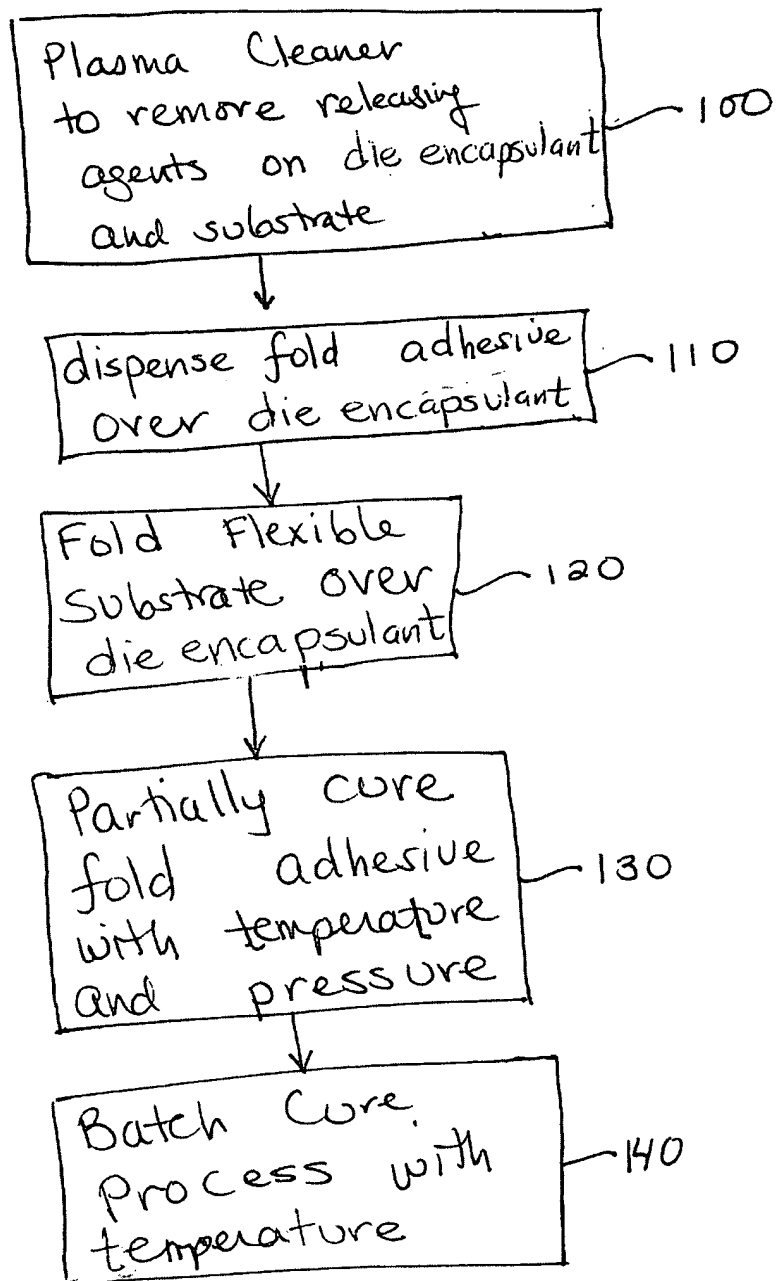 Plasma Cleaner
to remove releasing
agents on die encapsulant
and substrate
100
dispense fold adhesive
over die encapsulant
110
Fold Flexible
Substrate over
die encapsulant
120
Partially cure
fold adhesive
with temperature
and pressure
130
Batch Cure
Process with
temperature
140